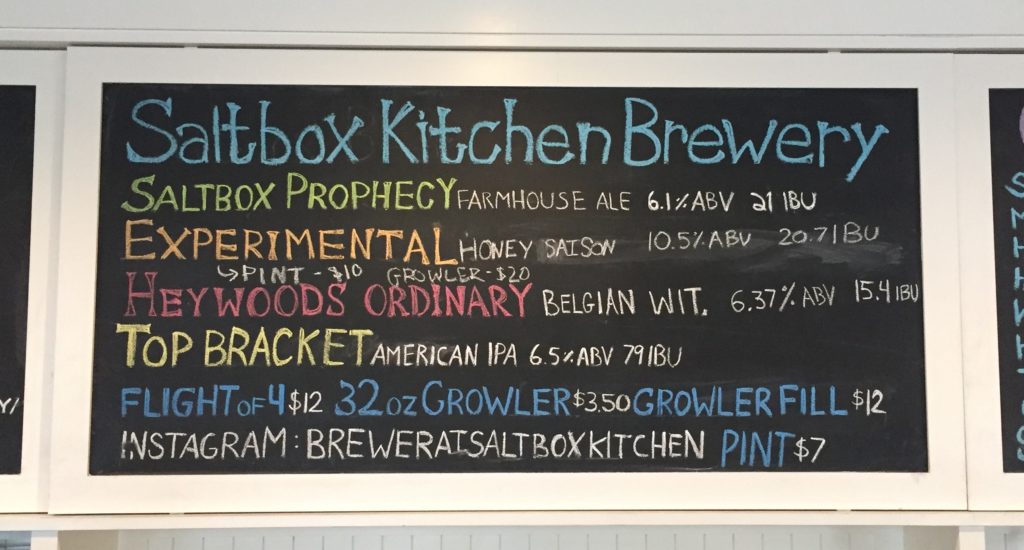 Saltbox Kitchen Brewery
SALTBOX PROPHECY FARMHOUSE ALE 6.1% ABV 21 IBU
EXPERIMENTAL HONEY SAISON 10.5% ABV 20.7 IBU
↳PINT - $10 GROWLER - $20
HEYWOODS ORDINARY BELGIAN WIT. 6.37% ABV 15.4 IBU
TOP BRACKET AMERICAN IPA 6.5% ABV 79 IBU
FLIGHT OF 4 $12 32oz GROWLER $3.50 GROWLER FILL $12
INSTAGRAM: BREWERATSALTBOXKITCHEN PINT $7